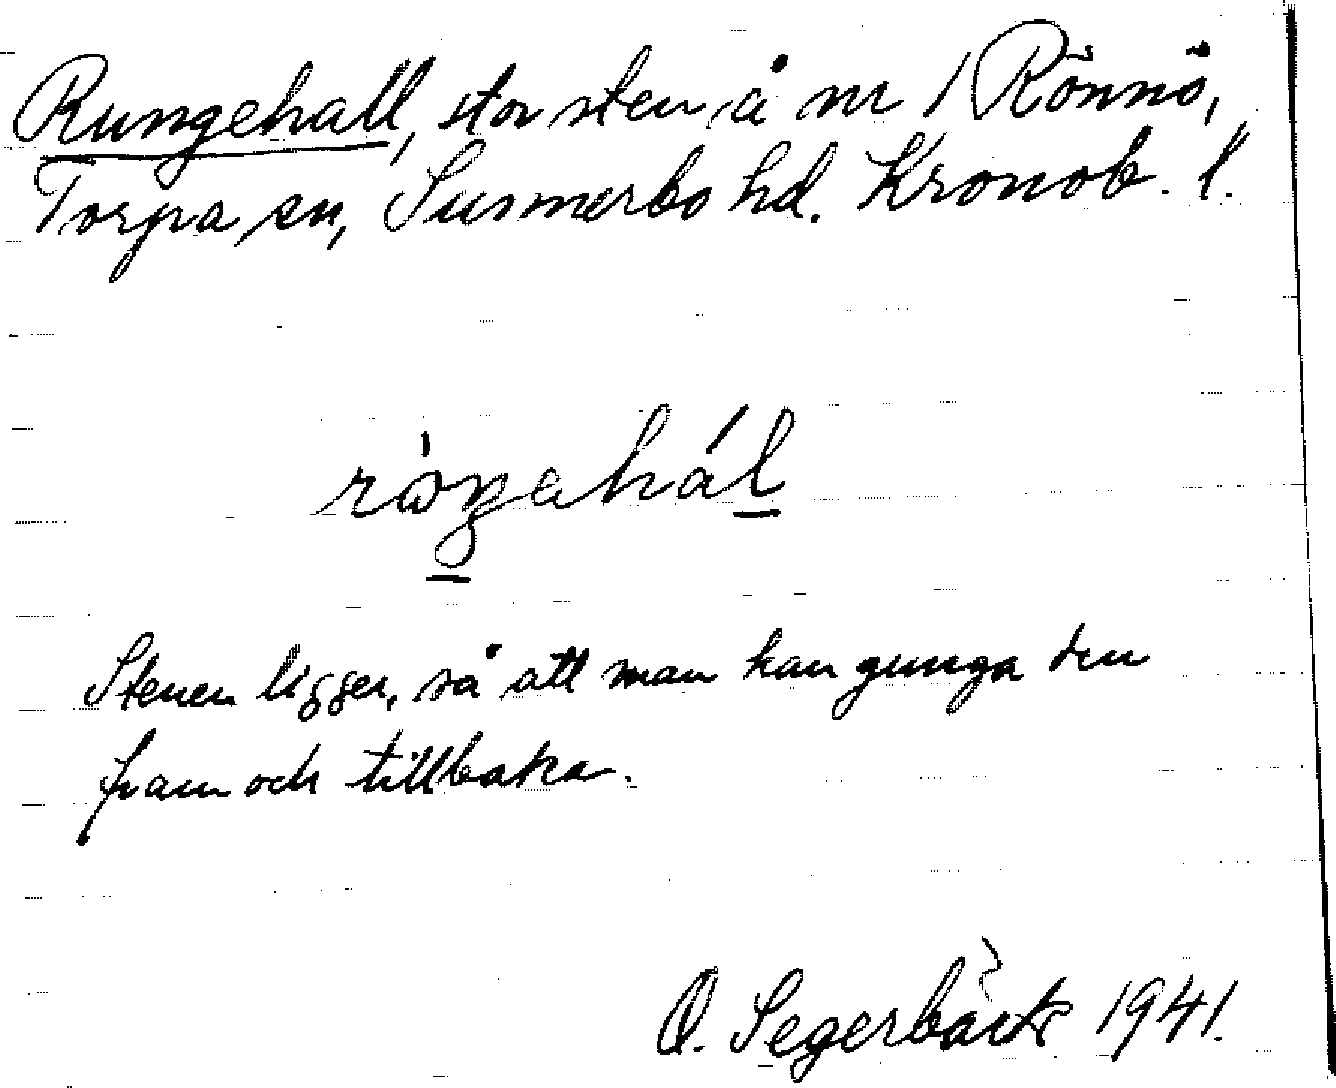 Rungehall, stor sten å nr 1 Rönnö,
Torpa sn, Sunnerbo hd. Kronob. l.
Stenen ligger, så att man kan gunga den
fram och tillbaka.
O. Segerbäck 1941.